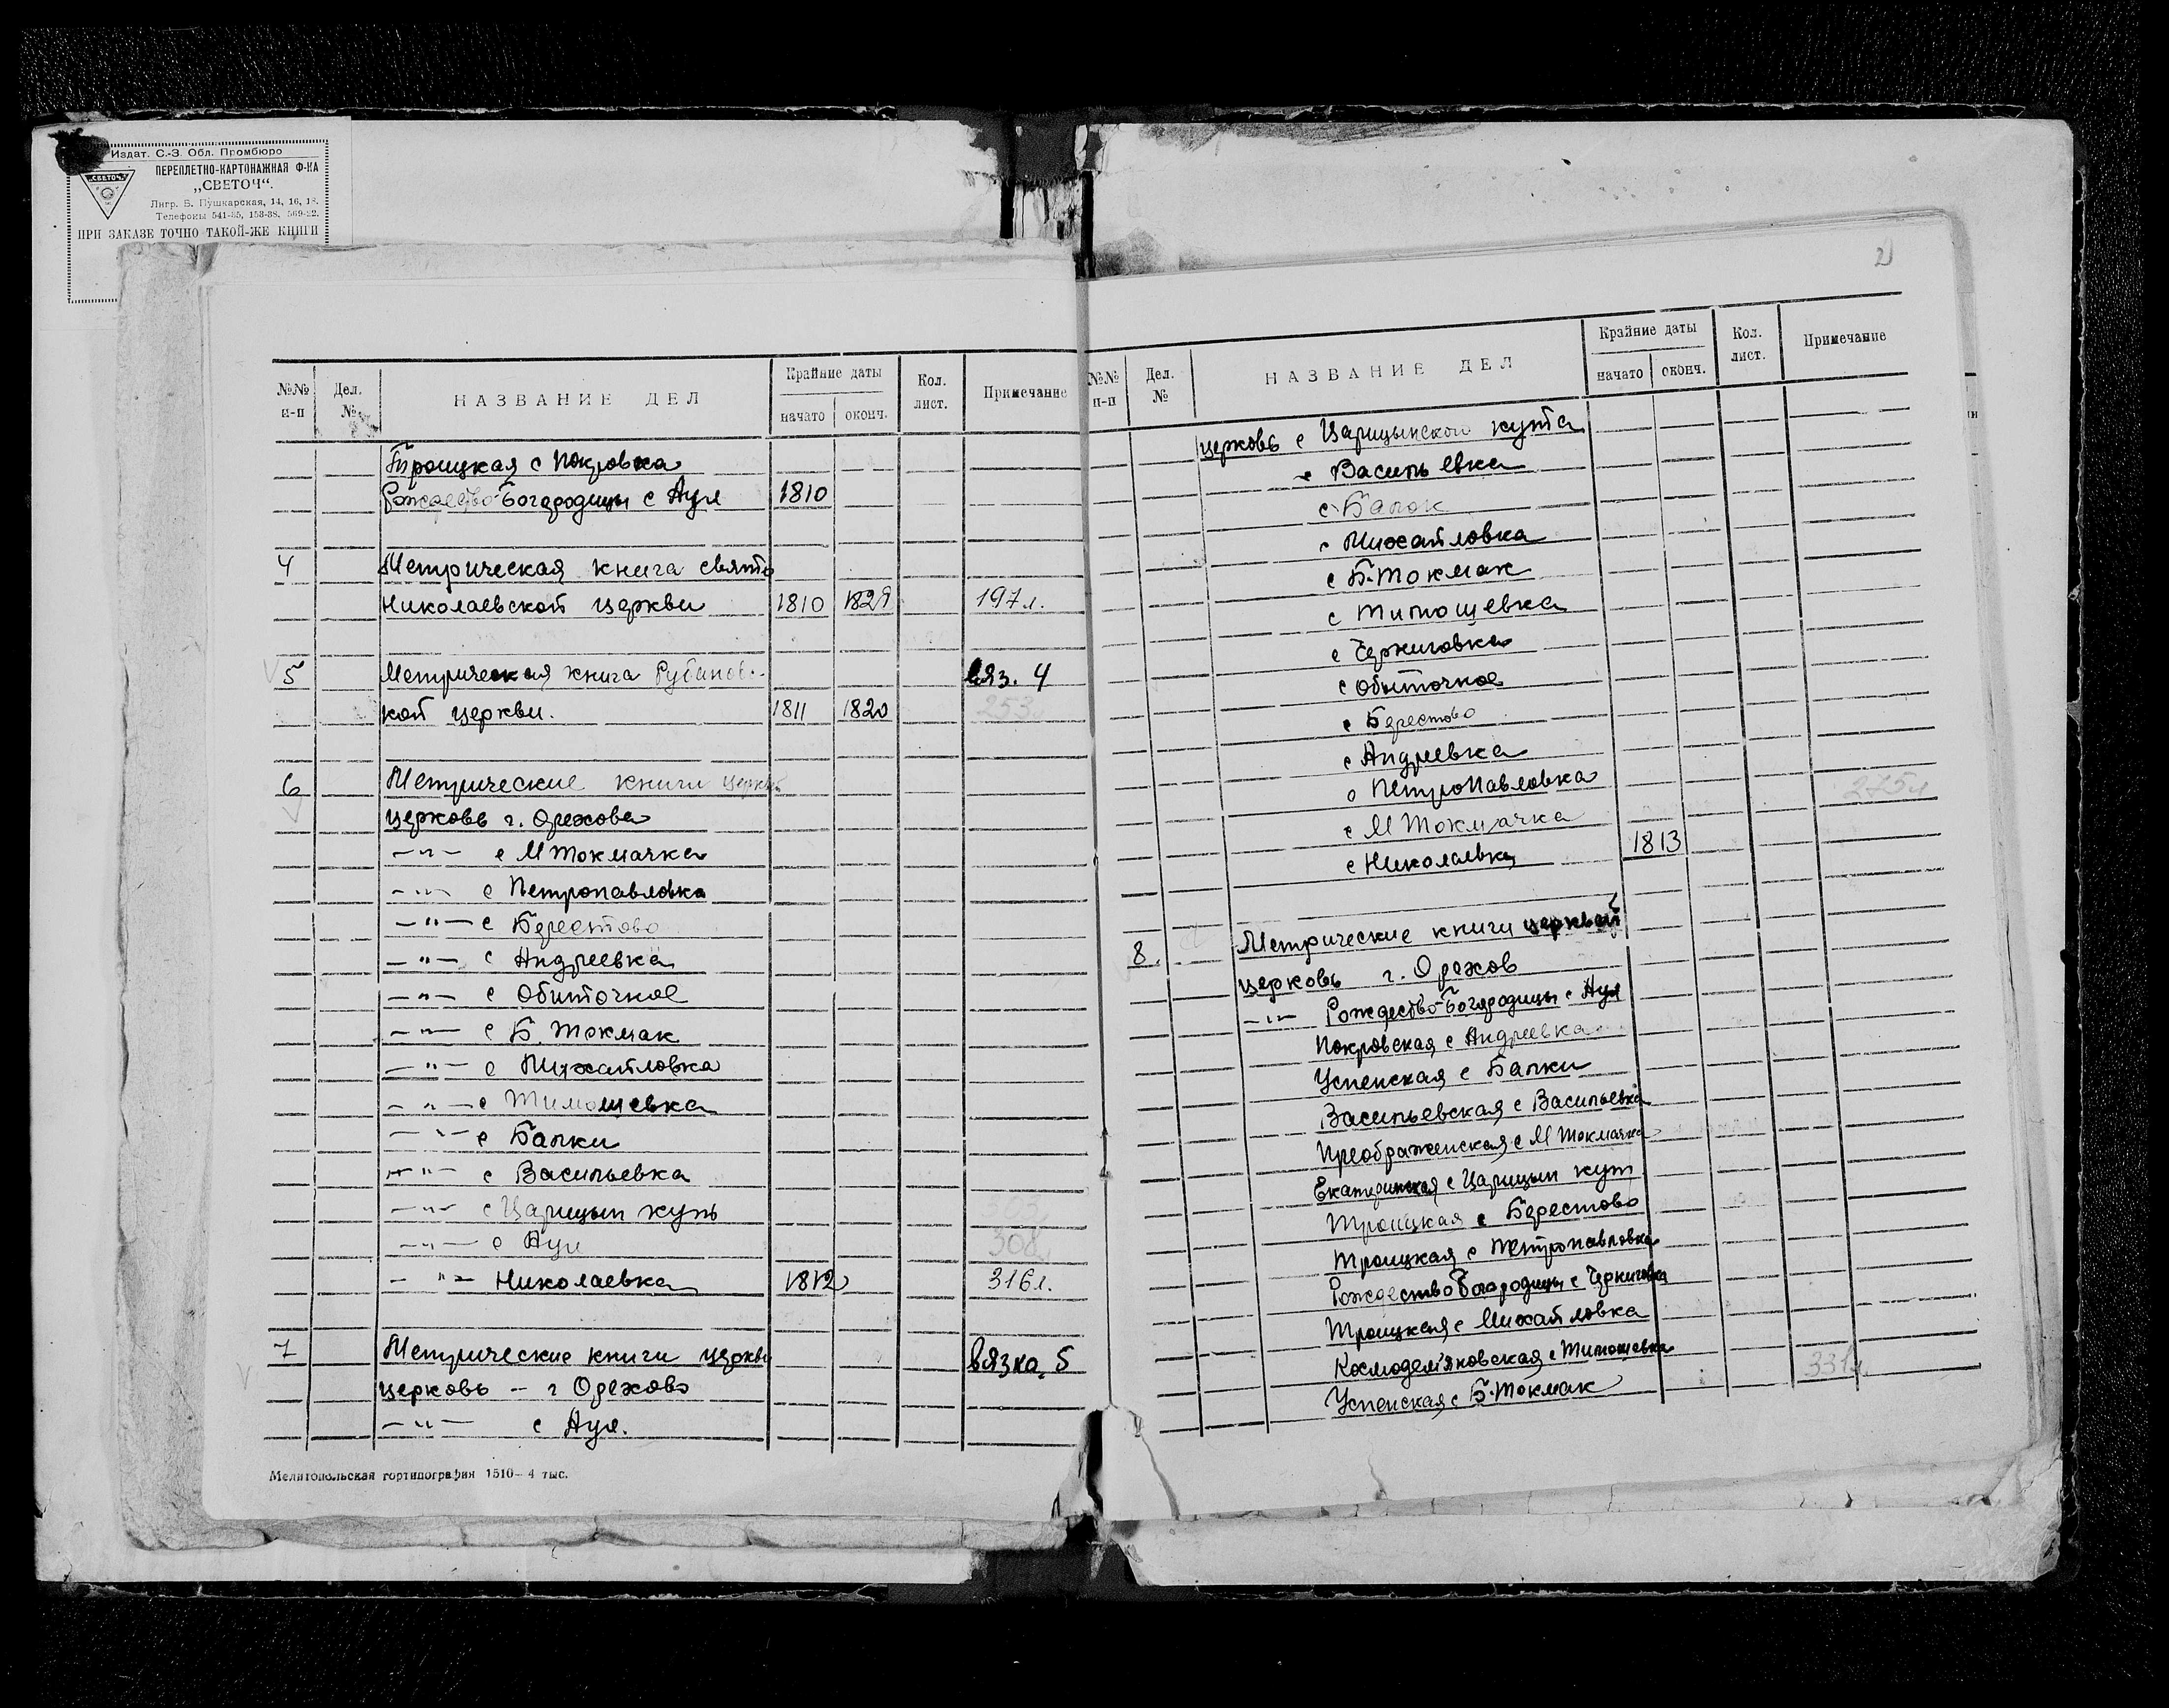 Издат. С.-З. Обл. Промбюро
„СВЕТОЧ"
ПЕРЕПЛЕТНО-КАРТОНАЖНАЯ Ф-КА
„СВЕТОЧ".
Лнгр. Б. Пушкарская, 14, 16, 18.
Телефоны 541-35, 153-38, 569-22.
ПРИ ЗАКАЗЕ ТОЧНО ТАКОЙ-ЖЕ КНИГИ
№№ п-п Дел. № НАЗВАНИЕ ДЕЛ Крайние даты начато оконч. Кол. лист. Примечание
Троицкая с Покровка
Рождество-Богородицы с Аул 1810
4 Метрическая книга свято
Николаевской церкви 1810 1829 197л.
5 Метрическая книга Рубанов-
кой церкви. 1811 1820 вяз. 4
253
6 Метрические книги церкв
церковь г. Орехова
-"- с М Токмачка
-"- с Петропавловка
-"- с Берестово
-"- с Андреевка
-"- с Обиточное
-"- с Б. Токмак
-"- с Михайловка
-"- с Тимошевка
-"- с Балки
-"- с Васильевка
-"- с Царицын куть
-"- с Аул 308
-"- Николаевка 1812 316л.
7 Метрические книги церкви вязка 5
церковь - г Орехово
-"- с Аул.
Мелитопольская гортипография 1510—4 тыс.
2
№№ п-п Дел. № НАЗВАНИЕ ДЕЛ Крайние даты начато оконч. Кол. лист. Примечание
церковь с Царицынского кута
с Васильевка
с Балок
с Михайловка
с Б-Токмак
с Тимошевка
с Черниговка
с Обыточное
с Берестово
с Андреевка
с ПетроПавловка 275л
с М Токмачка
с Николаевка 1813
8. Метрические книги церквей
церковь г. Орехов
-"- Рождество-Богородицы с Аул
Покровская с Андреевка
Успенская с Балки
Васильевская с Васильевка
Преображенская с М Токмачка
Екатеринская с Царицын кут
Троицкая с Берестово
Троицкая с Петропавловка
Рождество Богородицы с Черниговка
Троицкая с Михайловка
Космодемяновская с Тимошевка
Успенская с Б-Токмак 331л